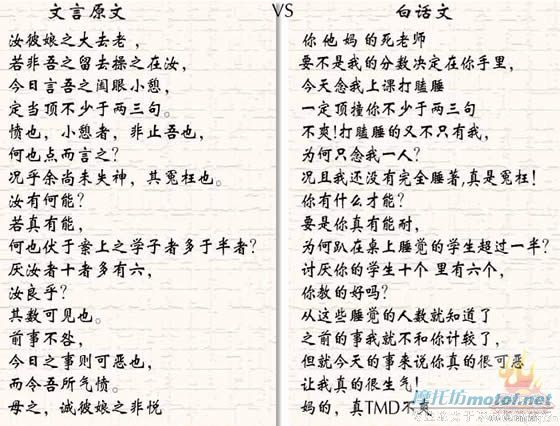 文言原文 VS 白话文
汝彼娘之大去老，
若非吾之留去操之在汝，
今日言吾之闺眼小憩，
定当顶不少于两三句。
愤也，小憩者，非止吾也，
何也点而言之？
况乎余尚未失神，其冤枉也。
汝有何能？
若真有能，
何也伏于案上之学子者多于半者？
厌汝者十者多有六，
汝良乎？
其数可见也。
前事不咎，
今日之事则可恶也，
而令吾所气愤。
母之，诚彼娘之非悦
你他妈的死老师
要不是我的分数决定在你手里，
今天念我上课打瞌睡
一定顶撞你不少于两三句
不爽！打瞌睡的又不只有我，
为何只念我一人？
况且我还没有完全睡著，真是冤枉！
你有什么才能？
要是你真有能耐，
为何趴在桌上睡觉的学生超过一半？
讨厌你的学生十个 里有六个，
你教的好吗？
从这些睡觉的人数就知道了
之前的事我就不和你计较了，
但就今天的事来说你真的很可恶
让我真的很生气！
妈的，真TMD不爽
摩托坊motof.net